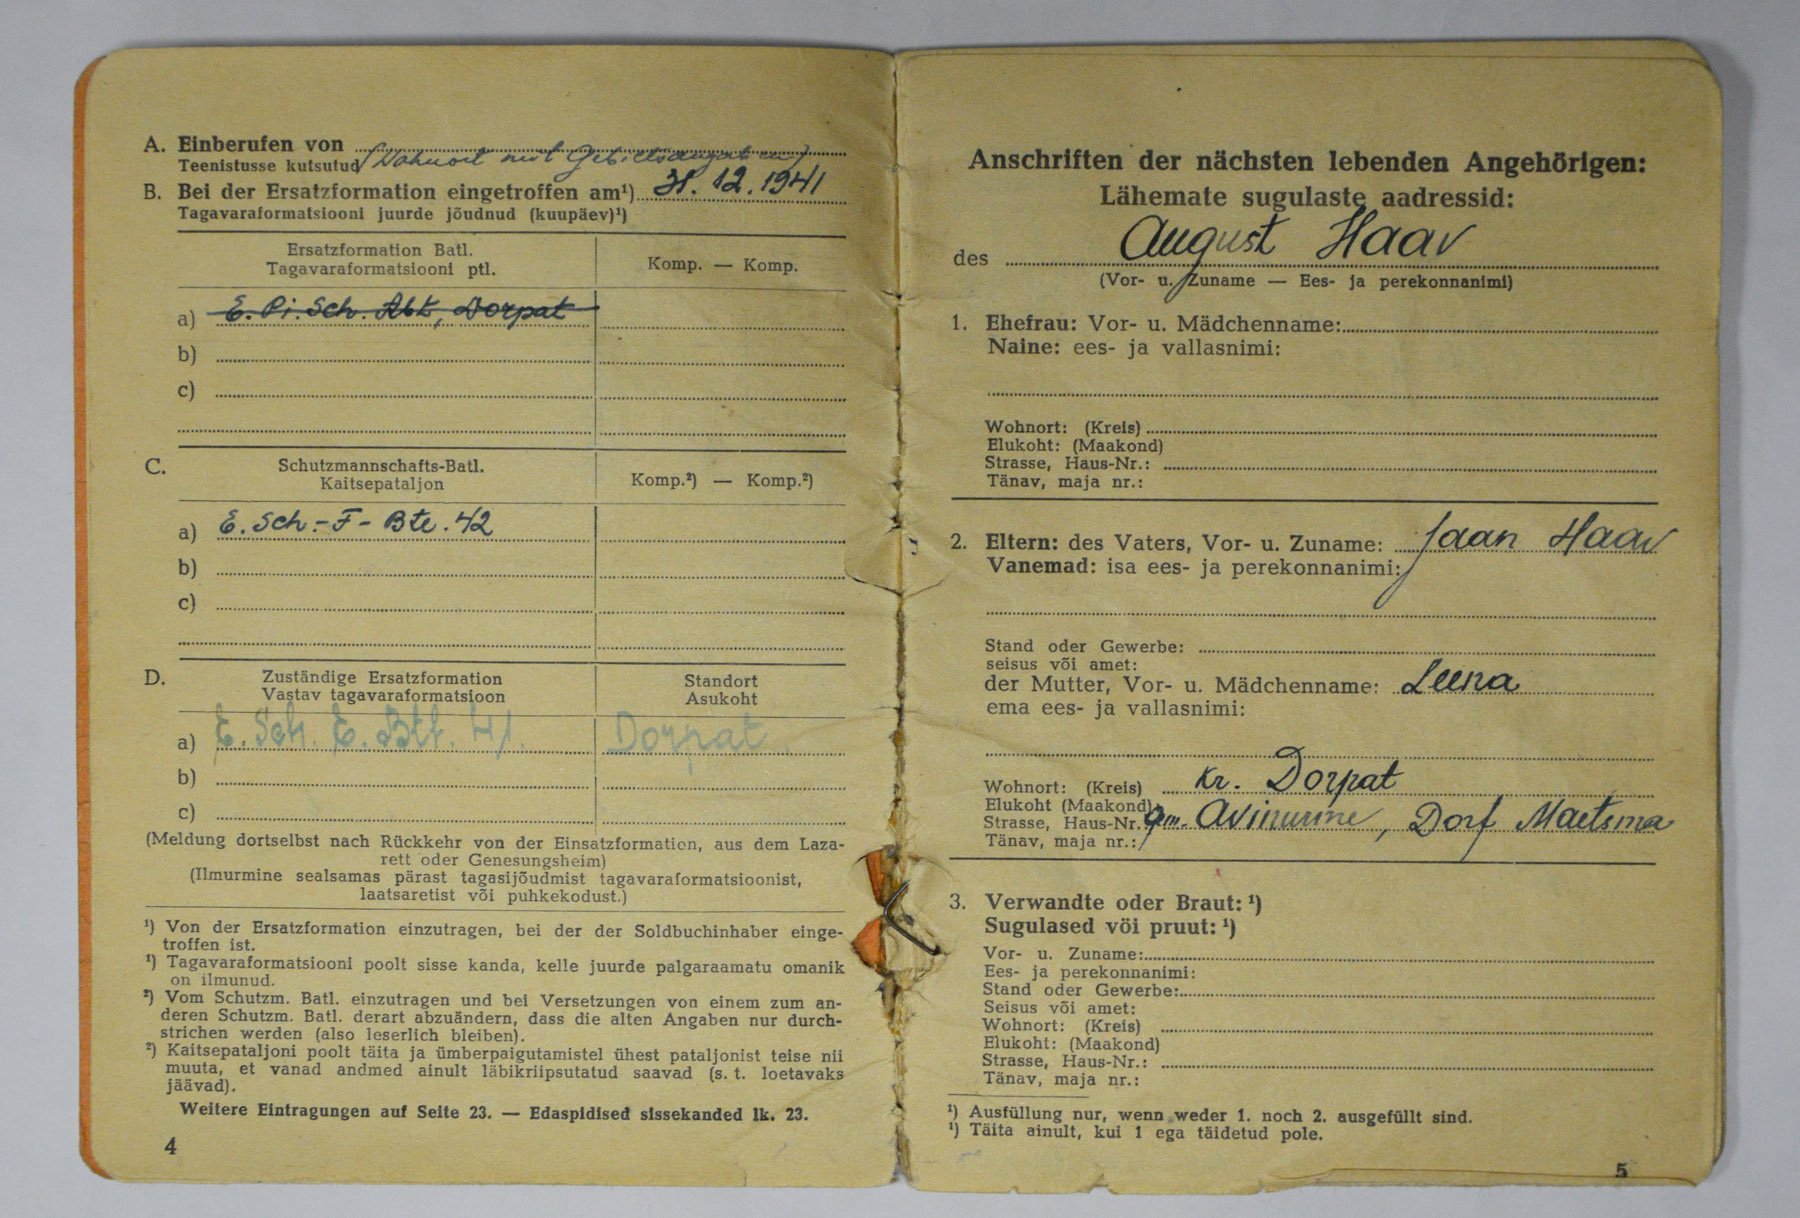 A. Einberufen von
Teenistusse kutsutud (Wohnort mit Gebietsangaben)
B. Bei der Ersatzformation eingetroffen am¹) 31. 12. 1941
Tagavaraformatsiooni juurde jõudnud (kuupäev)¹)
Ersatzformation Batl.
Tagavaraformatsiooni ptl.
Komp. — Komp.
a) E. Pi. Sch. Abt, Dorpat
b)
c)
C. Schutzmannschafts-Batl.
Kaitsepataljon
Komp.²) — Komp.²)
a) E. Sch.-F-Btl. 42
b)
c)
D. Zuständige Ersatzformation
Vastav tagavaraformatsioon
Standort
Asukoht
a) E. Sch. E. Btl. 41. Dorpat.
b)
c)
(Meldung dortselbst nach Rückkehr von der Einsatzformation, aus dem Laza-
rett oder Genesungsheim)
(Ilmurmine sealsamas pärast tagasijõudmist tagavaraformatsioonist,
laatsaretist või puhkekodust.)
¹) Von der Ersatzformation einzutragen, bei der der Soldbuchinhaber einge-
troffen ist.
¹) Tagavaraformatsiooni poolt sisse kanda, kelle juurde palgaraamatu omanik
on ilmunud.
²) Vom Schutzm. Batl. einzutragen und bei Versetzungen von einem zum an-
deren Schutzm. Batl. derart abzuändern, dass die alten Angaben nur durch-
strichen werden (also leserlich bleiben).
²) Kaitsepataljoni poolt täita ja ümberpaigutamistel ühest pataljonist teise nii
muuta, et vanad andmed ainult läbikriipsutatud saavad (s. t. loetavaks
jäävad).
Weitere Eintragungen auf Seite 23. — Edaspidised sissekanded lk. 23.
4
Anschriften der nächsten lebenden Angehörigen:
Lähemate sugulaste aadressid:
des August Haav
(Vor- u. Zuname — Ees- ja perekonnanimi)
1. Ehefrau: Vor- u. Mädchenname:
Naine: ees- ja vallasnimi:
Wohnort: (Kreis)
Elukoht: (Maakond)
Strasse, Haus-Nr.:
Tänav, maja nr.:
2. Eltern: des Vaters, Vor- u. Zuname: Jaan Haav
Vanemad: isa ees- ja perekonnanimi:
Stand oder Gewerbe:
seisus või amet:
der Mutter, Vor- u. Mädchenname: Leena
ema ees- ja vallasnimi:
Wohnort: (Kreis) Kr. Dorpat
Elukoht (Maakond)
Strasse, Haus-Nr. Gm. Avinurme, Dorf Maetsma
Tänav, maja nr.:
3. Verwandte oder Braut: ¹)
Sugulased vöi pruut: ¹)
Vor- u. Zuname:
Ees- ja perekonnanimi:
Stand oder Gewerbe:
Seisus või amet:
Wohnort: (Kreis)
Elukoht: (Maakond)
Strasse, Haus-Nr.:
Tänav, maja nr.:
¹) Ausfüllung nur, wenn weder 1. noch 2. ausgefüllt sind.
¹) Täita ainult, kui 1 ega täidetud pole.
5